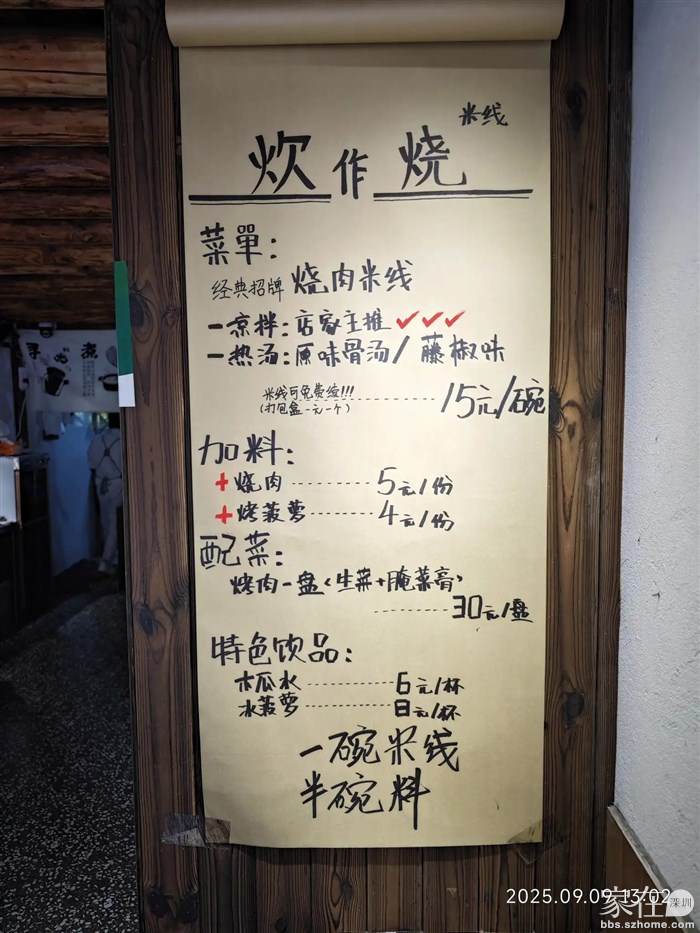 米线
炊作烧
菜單:
经典招牌 烧肉米线
一凉拌:店家主推✓✓✓
一热汤:原味骨汤/藤椒味
米线可免费续!!!
(打包盒一元一个)
15元/碗
加料:
+烧肉---------5元/份
+烤菠萝-------4元/份
配菜:
烤肉一盘<生菜+腌菜膏>
---------30元/盘
特色饮品:
木瓜水---------6元/杯
水菠萝---------8元/杯
一碗米线
半碗料
2025.09.09 13:02
家在深圳
bbs.szhome.com